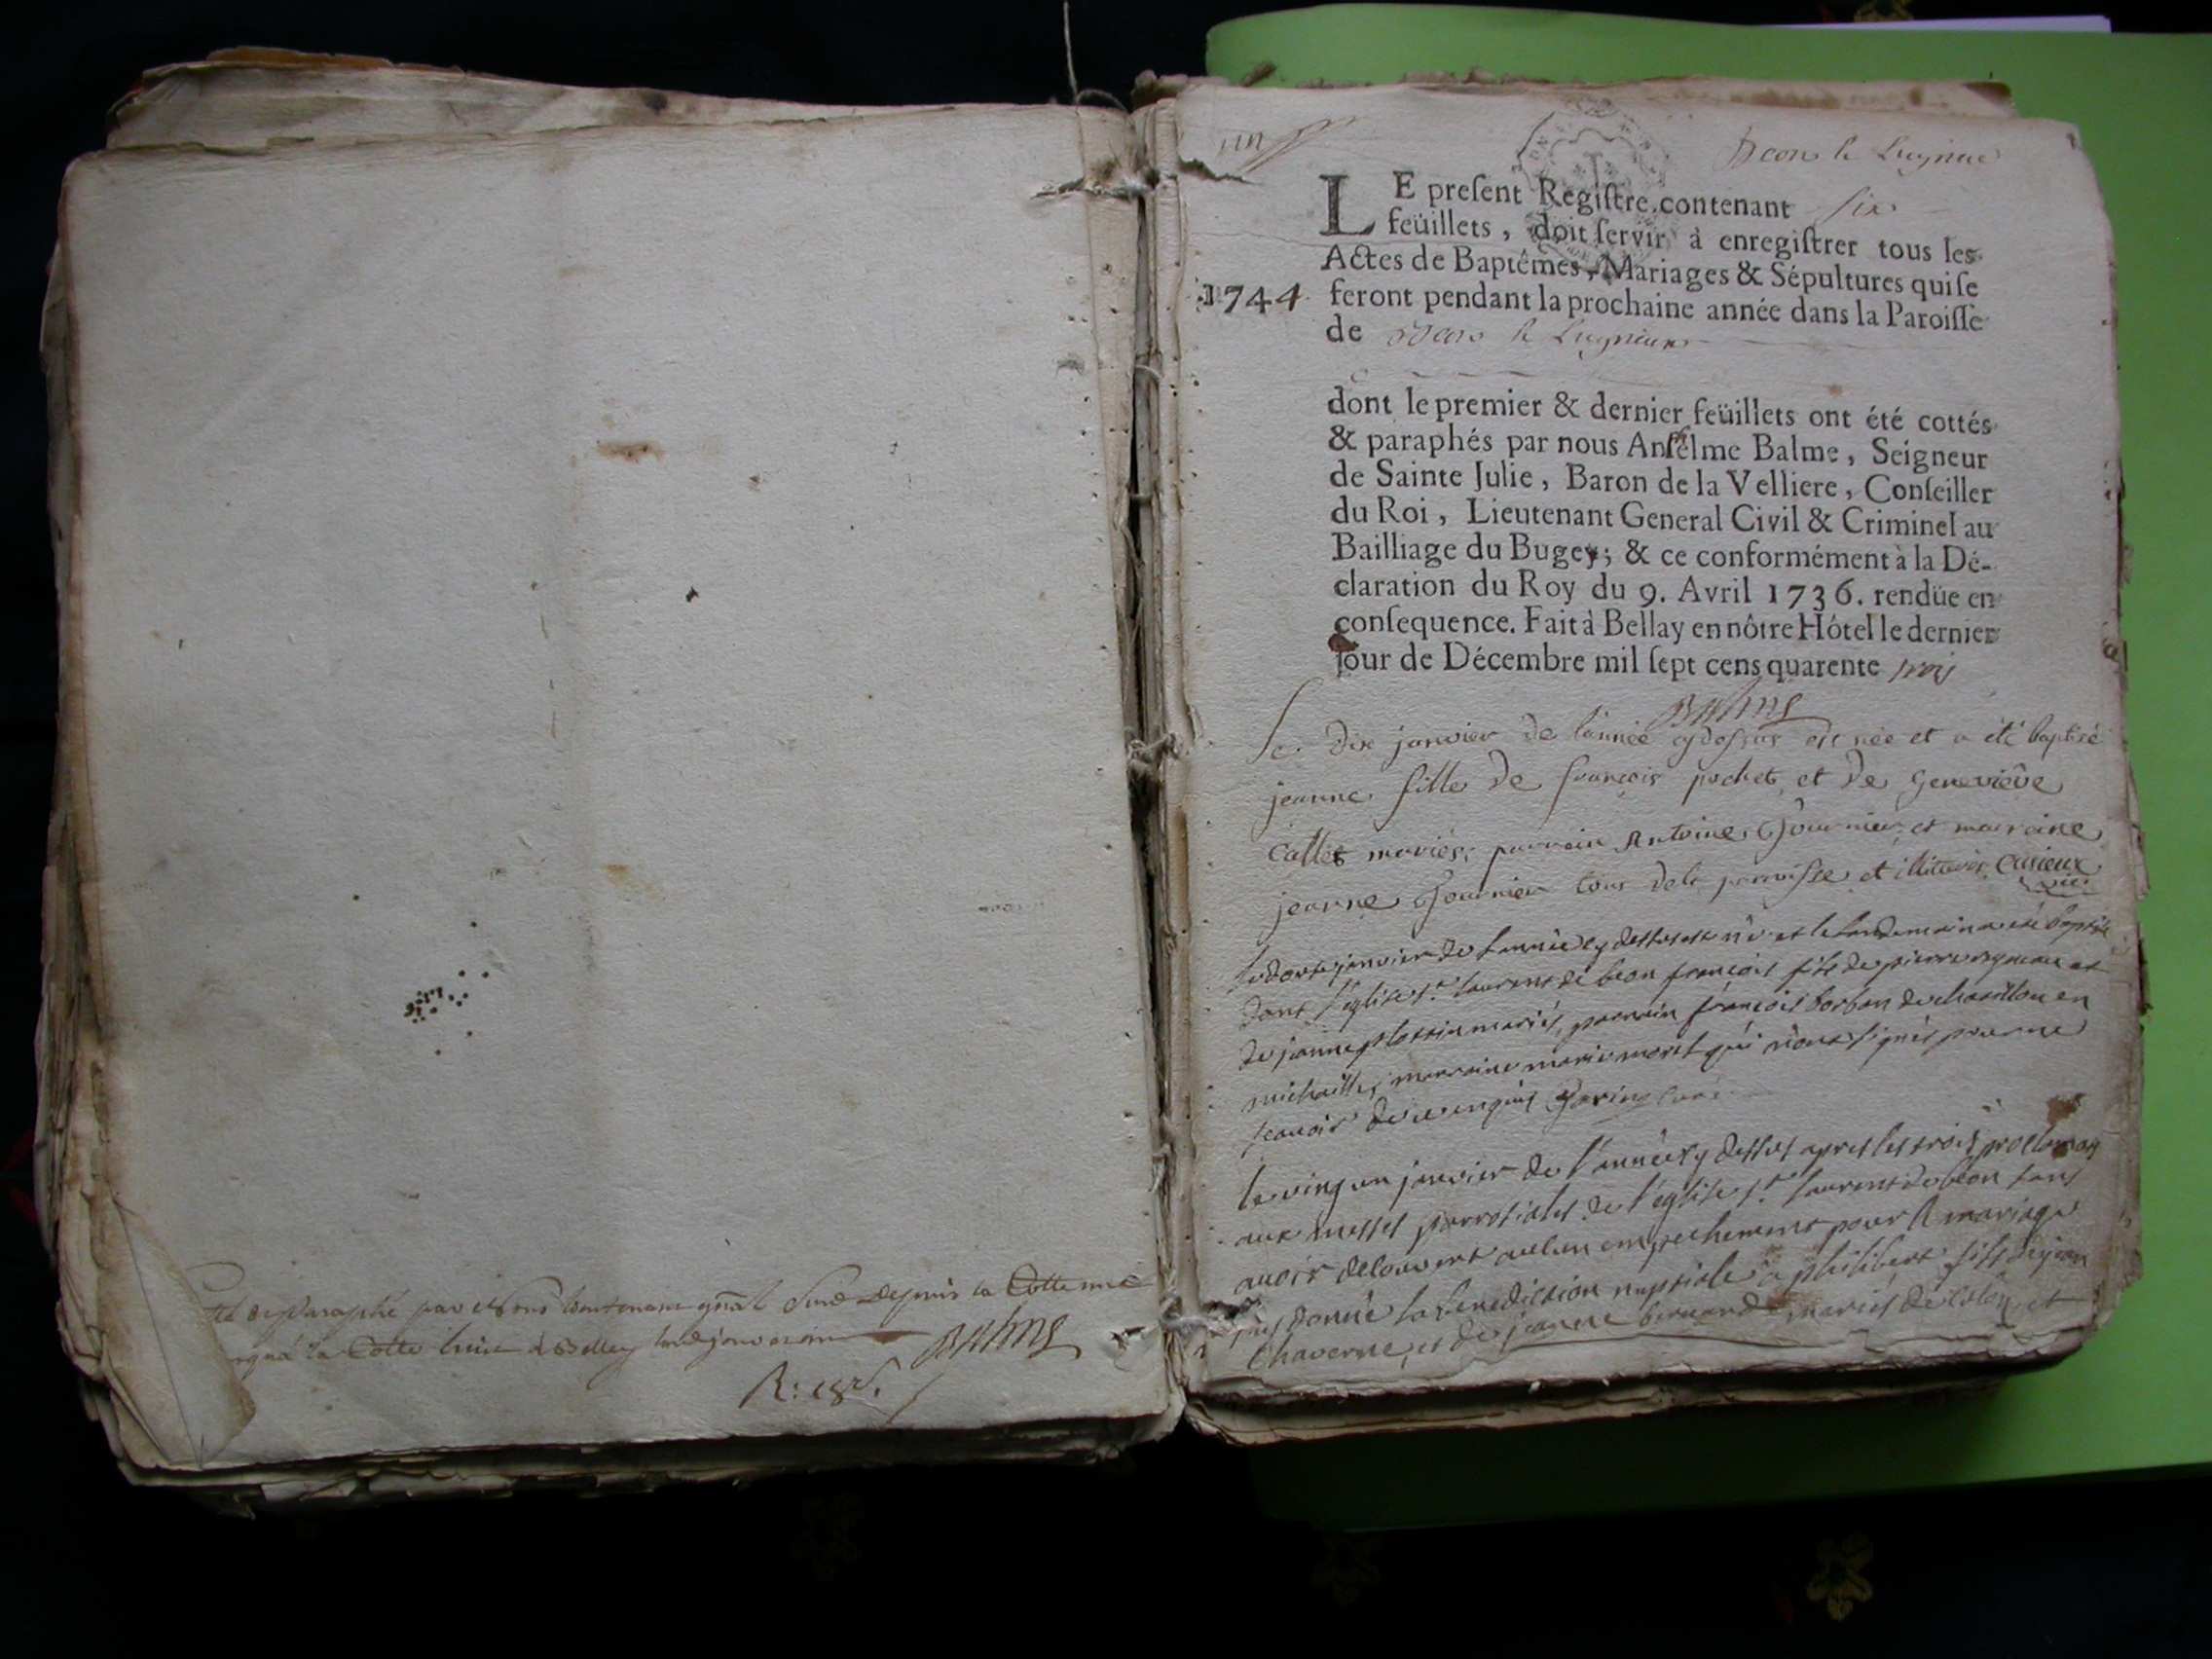 par Nous Lieutenant gñal depuis la Cotte une
la Cotte huit à Belley
Balme
R:
un
Beon le Luynieu
LE preſent Regiſtre contenant six
feüillets, doit ſervir à enregiſtrer tous les
Actes de Baptêmes, Mariages & Sépultures qui ſe
1744 feront pendant la prochaine année dans la Paroiſſe
de Beon le Luynieu
dont le premier & dernier feüillets ont été cottés
& paraphés par nous Anſelme Balme, Seigneur
de Sainte Julie, Baron de la Velliere, Conſeiller
du Roi, Lieutenant General Civil & Criminel au
Bailliage du Bugey; & ce conformément à la Dé-
claration du Roy du 9. Avril 1736. rendüe en
conſequence. Fait à Bellay en nôtre Hôtel le dernier
Jour de Décembre mil ſept cens quarente trois
Balme
le dix janvier de lannée cydessus est née et a eté baptisé
jeanne fille de francois pochet et de geneviève
Callet mariés, parrain Antoine fournier et marraine
jeanne fournier tous de la parroisse et illiterés Curieux
vic.
le janvier de lannée cy dessus est né et le landemain a eté baptisé
dans l'eglise st laurent de beon francois fils de pierre et
de janne mariés, parrain francois borbon de chatillon en
michaille, marraine marie moret qui n'ont signés pour ne
scavoir de ce enquis
le vingt un janvier de l'année cy dessus apres les trois proclamaons
aux messes parrosiales de l'eglise st laurent de beon sans
avoir decouvert aucun empechement pour le mariage
jay donné la benediction nuptiale à philibert fils de jean
chaverne, et de jeanne bernard mariés de et